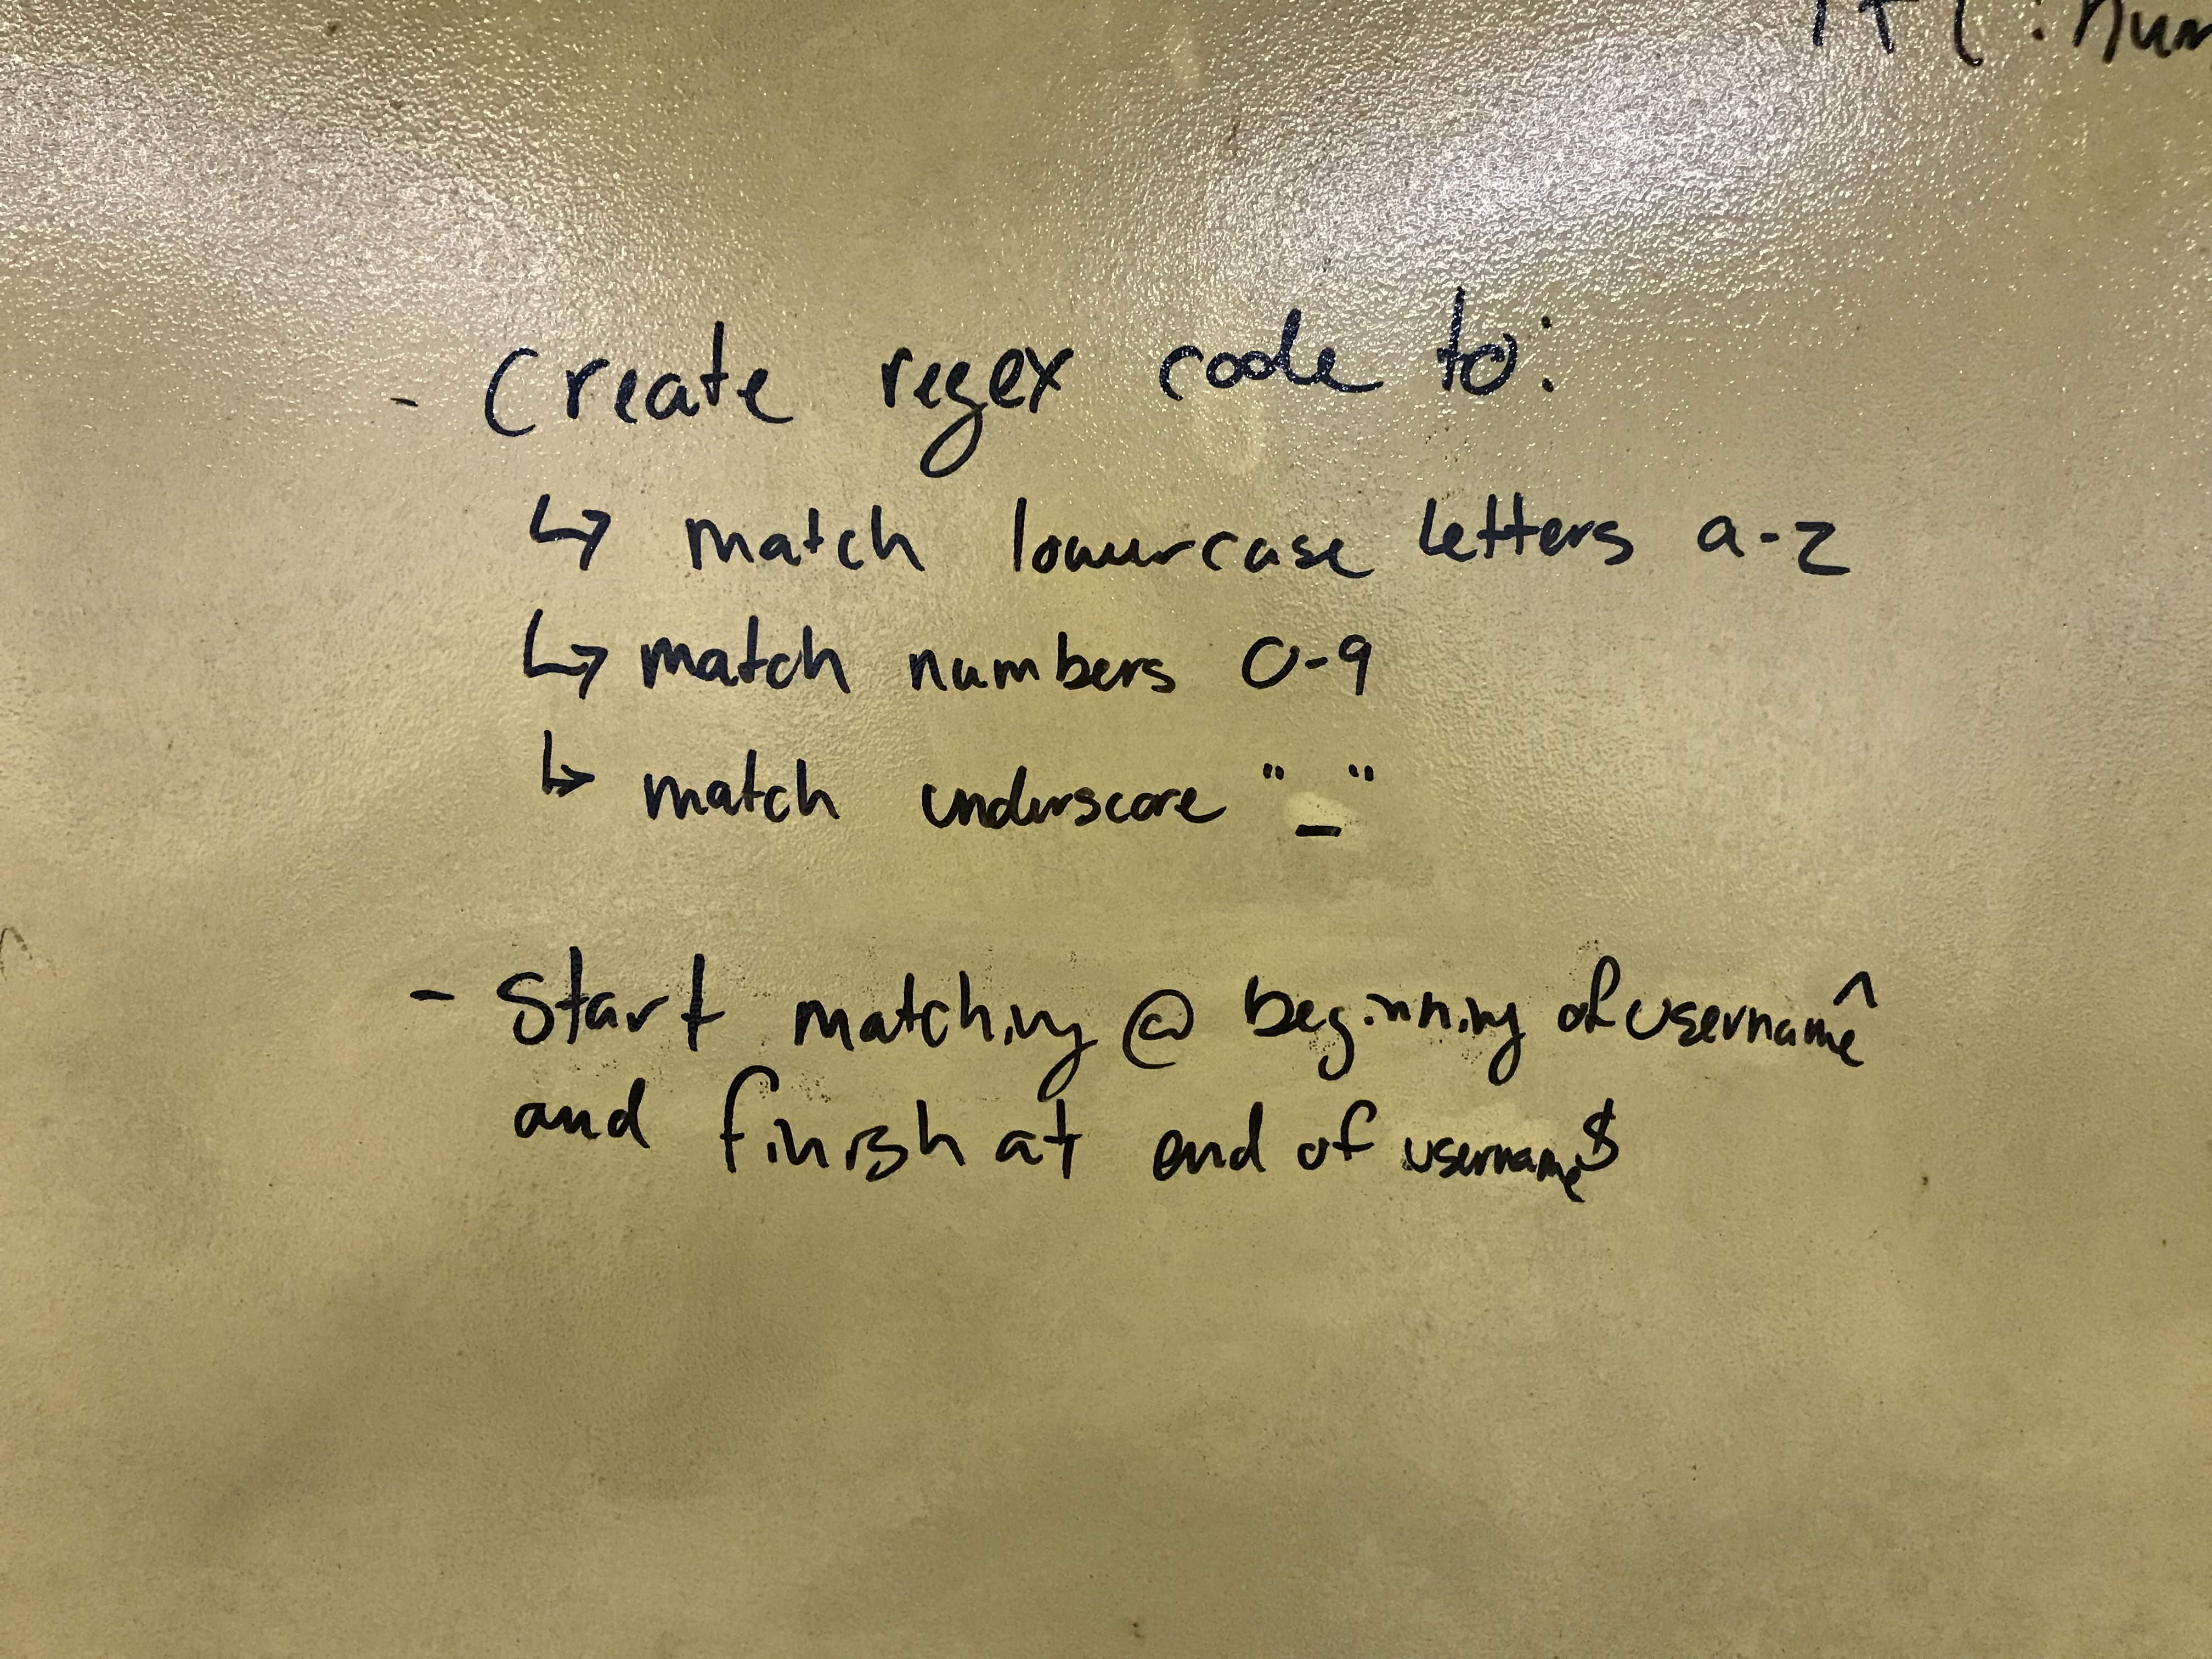 : num
- Create regex code to:
↳ match lowercase letters a-z
↳ match numbers 0-9
↳ match underscore "_"
- Start matching @ beginning of username^
and finish at end of username$